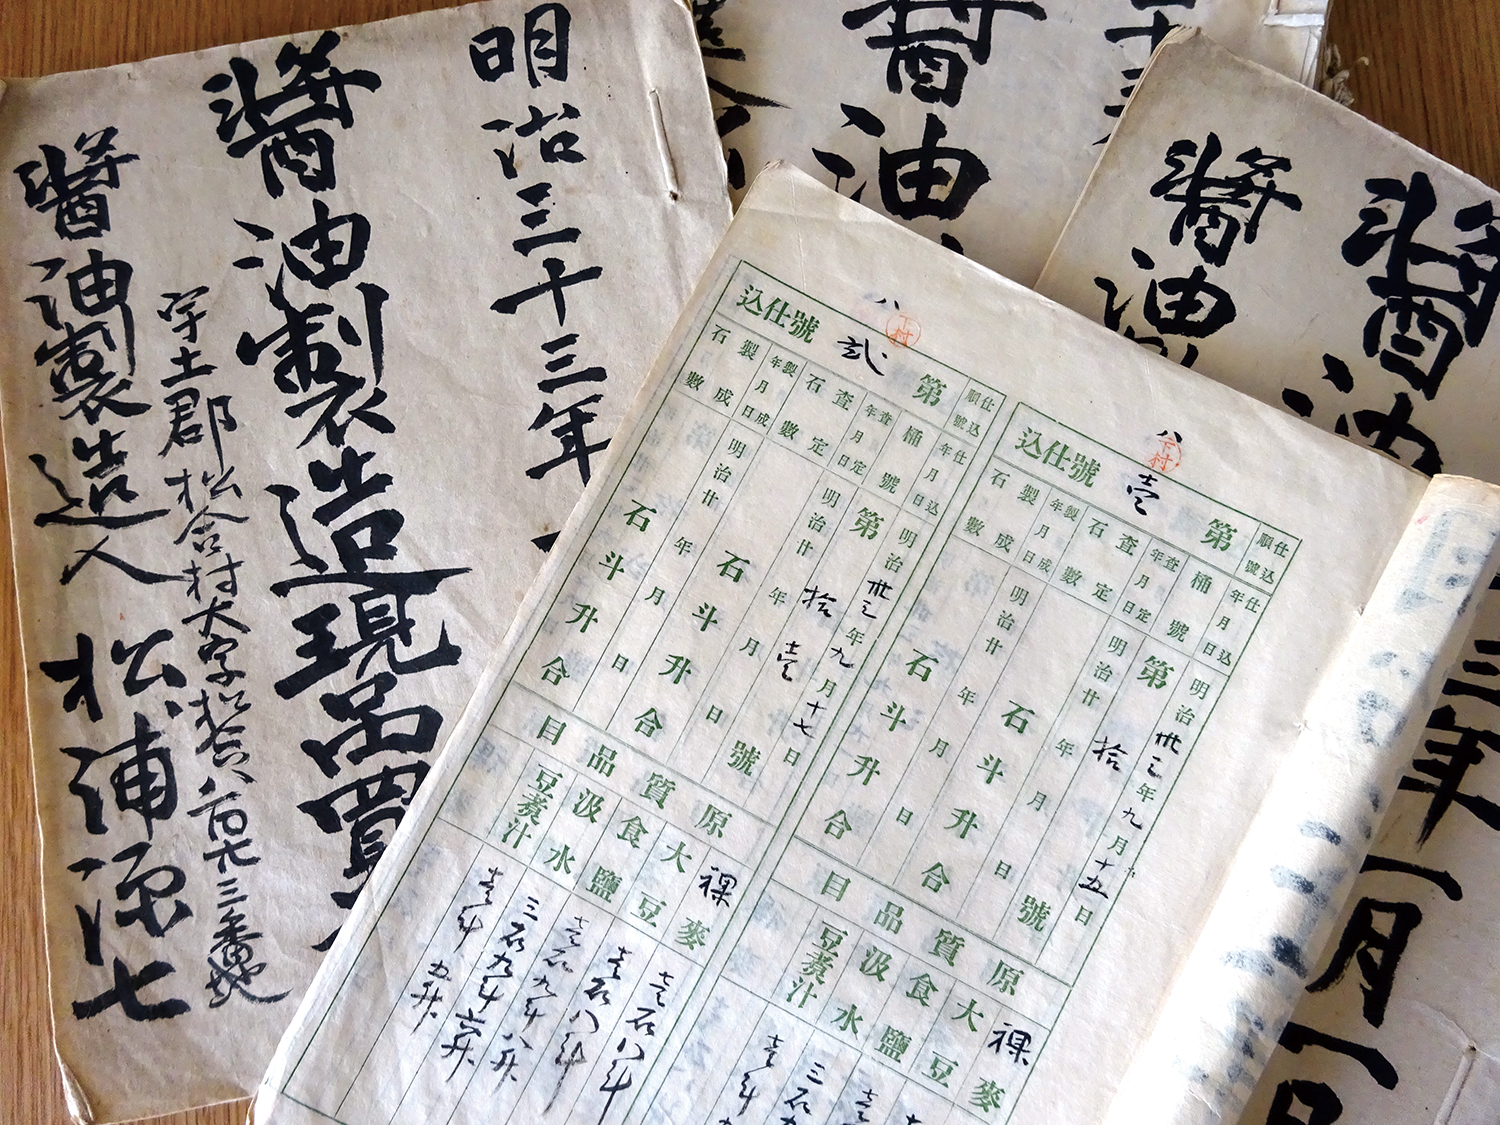 明治三十三年
醬油製造現品買
宇土郡松合村大字松合八百六十三番地
醬油製造人 松浦源七
醬油
醬油
醬油
年一月一日
八
下村
第壹號仕込
仕込順號
仕込年月日 明治卅三年九月十五日
桶號 第拾號
査定年月日 明治廿 年 月 日
査定石數 石斗升合
製成年月日 明治廿 年 月 日
製成石數 石斗升合
原質品目
裸麥
大豆
食鹽
汲水
豆煮汁
八
下村
第貳號仕込
仕込順號
仕込年月日 明治卅三年九月十七日
桶號 第拾壹號
査定年月日 明治廿 年 月 日
査定石數 石斗升合
製成年月日 明治廿 年 月 日
製成石數 石斗升合
原質品目
裸麥 壹石八斗
大豆 壹石八斗
食鹽 壹石九斗
汲水 三石九斗八升
豆煮汁 壹斗五升